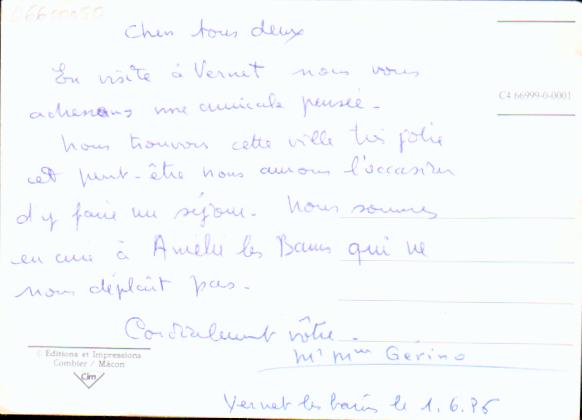 06600050
Chers tous deux
En visite à Vernet nous vous
adressons une amicale pensée.
Nous trouvons cette ville très jolie
et peut-être nous aurons l'occasion
d'y faire un séjour. Nous sommes
en cure à Amélie les Bains qui ne
nous déplaît pas.
Cordialement vôtre.
Mr Mme Gérino
Vernet les bains le 1.6.95
C4 66999-0-0001
© Editions et Impressions
Combier / Mâcon
Cim